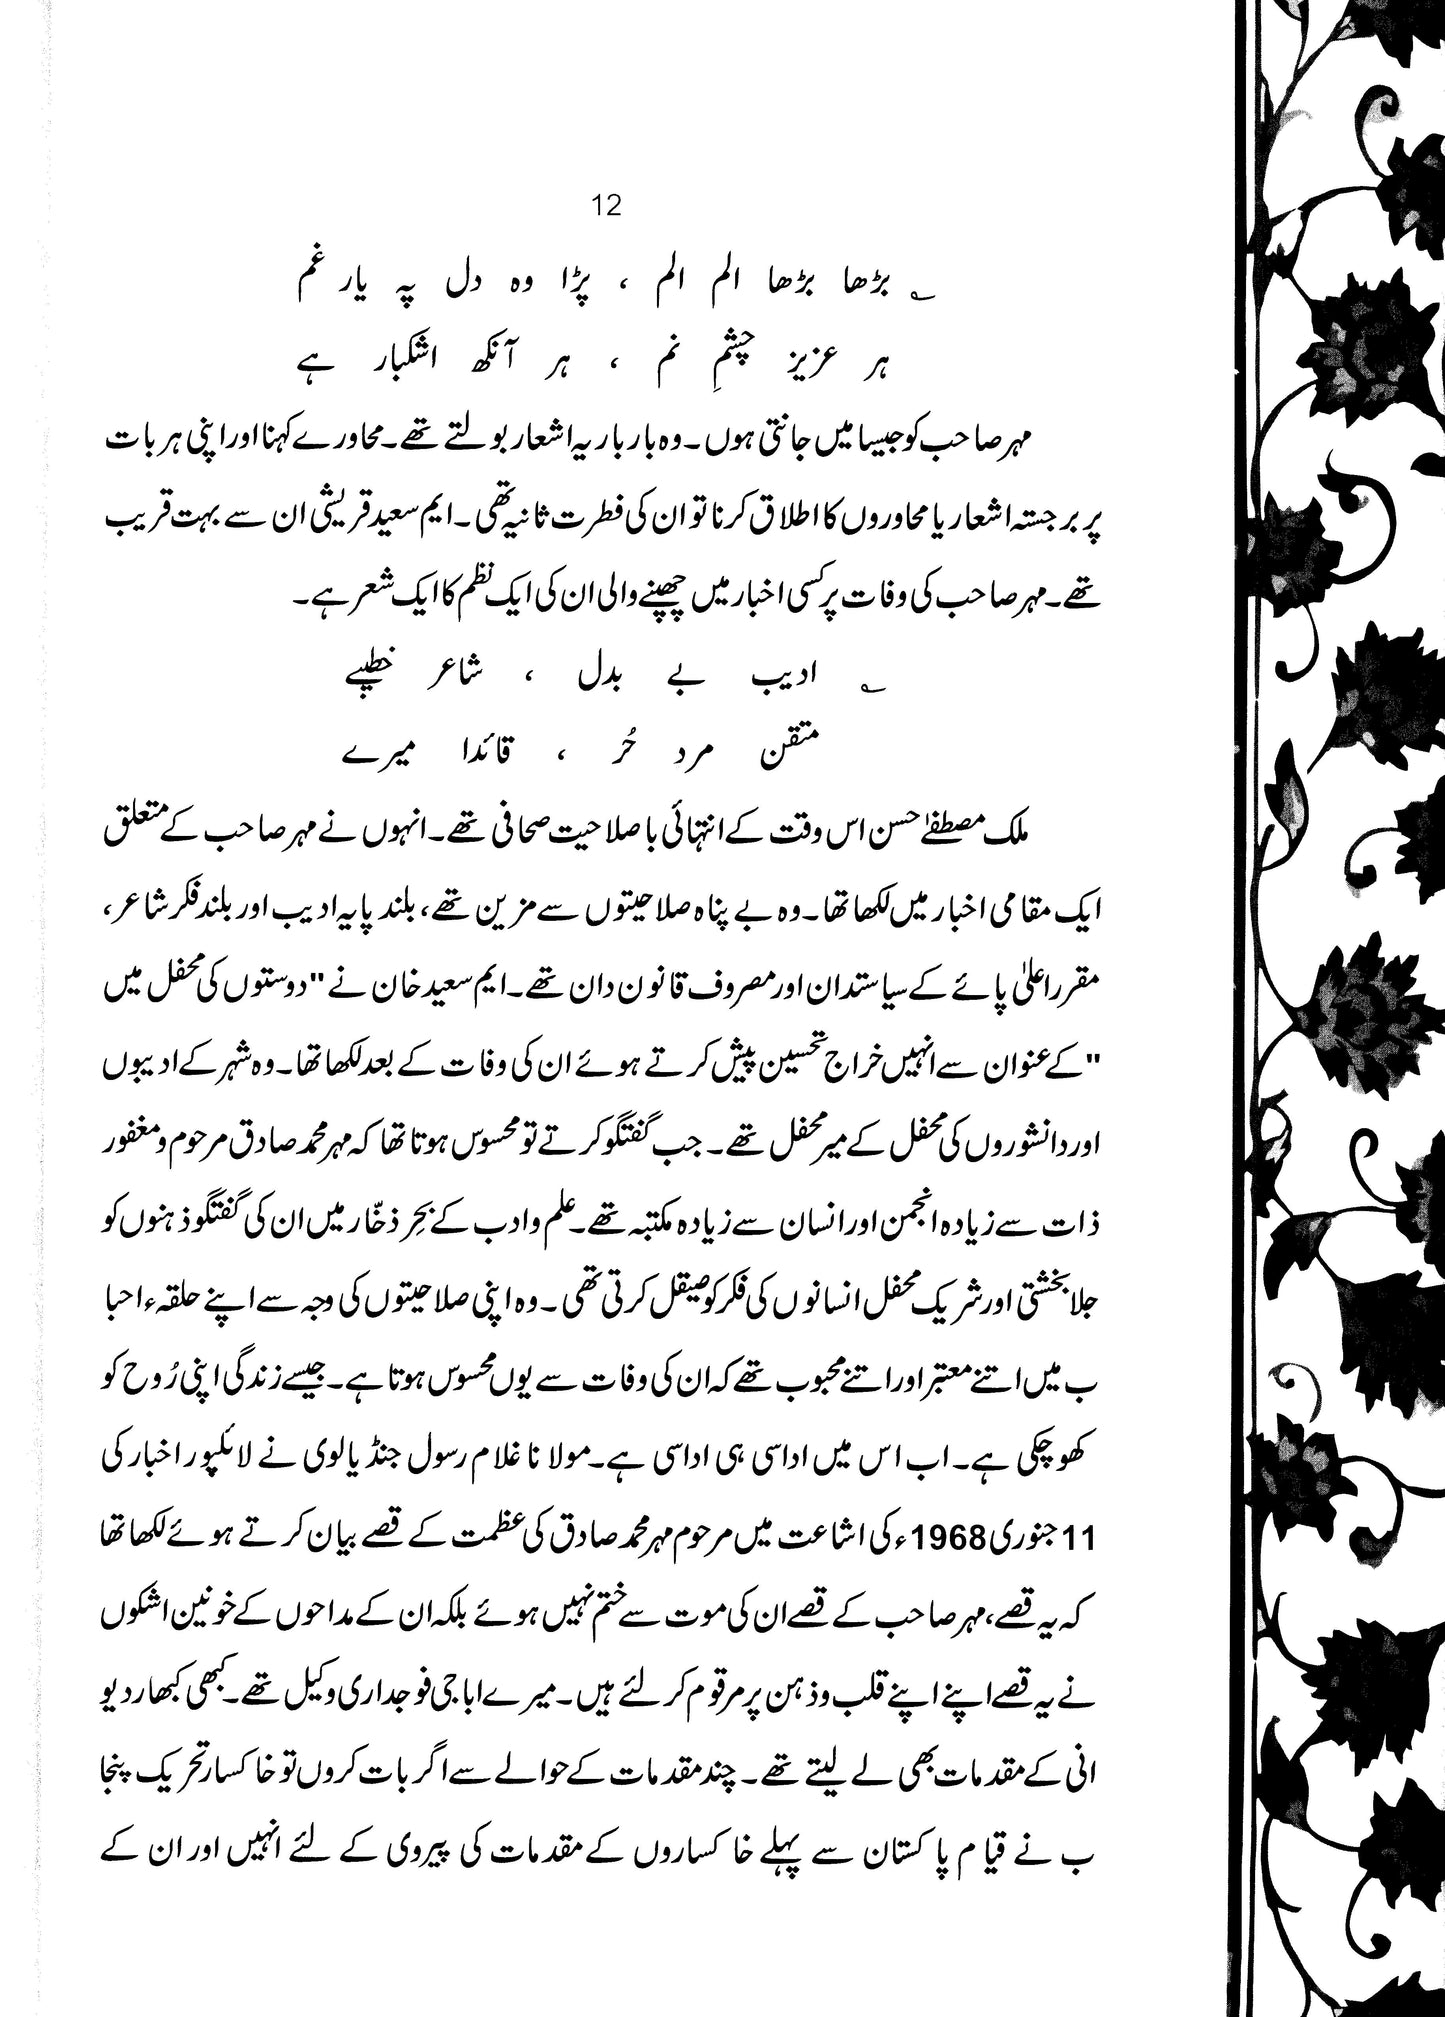 12
؎ بڑھا بڑھا الم الم ، پڑا وہ دل پہ یار غم
ہر عزیز چشمِ نم ، ہر آنکھ اشکبار ہے
مہر صاحب کو جیسا میں جانتی ہوں۔ وہ بار بار یہ اشعار بولتے تھے۔ محاورے کہنا اور اپنی ہر بات
پر برجستہ اشعار یا محاوروں کا اطلاق کرنا تو ان کی فطرت ثانیہ تھی۔ ایم سعید قریشی ان سے بہت قریب
تھے۔ مہر صاحب کی وفات پر کسی اخبار میں چھپنے والی ان کی ایک نظم کا ایک شعر ہے۔
؎ ادیب بے بدل ، شاعر خطیبے
متقن مرد حُر ، قائدا میرے
ملک مصطفےٰ حسن اس وقت کے انتہائی باصلاحیت صحافی تھے۔ انہوں نے مہر صاحب کے متعلق
ایک مقامی اخبار میں لکھا تھا۔ وہ بے پناہ صلاحیتوں سے مزین تھے، بلند پایہ ادیب اور بلند فکر شاعر،
مقرر اعلیٰ پائے کے سیاستدان اور مصروف قانون دان تھے۔ ایم سعید خان نے "دوستوں کی محفل میں
"کے عنوان سے انہیں خراج تحسین پیش کرتے ہوئے ان کی وفات کے بعد لکھا تھا۔ وہ شہر کے ادیبوں
اور دانشوروں کی محفل کے میر محفل تھے۔ جب گفتگو کرتے تو محسوس ہوتا تھا کہ مہر محمد صادق مرحوم و مغفور
ذات سے زیادہ انجمن اور انسان سے زیادہ مکتبہ تھے۔ علم و ادب کے بحرِ ذخّار میں ان کی گفتگو ذہنوں کو
جلا بخشتی اور شریک محفل انسانوں کی فکر کو صیقل کرتی تھی۔ وہ اپنی صلاحیتوں کی وجہ سے اپنے حلقہء احبا
ب میں اتنے معتبر اور اتنے محبوب تھے کہ ان کی وفات سے یوں محسوس ہوتا ہے۔ جیسے زندگی اپنی رُوح کو
کھو چکی ہے۔ اب اس میں اداسی ہی اداسی ہے۔ مولانا غلام رسول جنڈیالوی نے لائلپور اخبار کی
11 جنوری 1968ء کی اشاعت میں مرحوم مہر محمد صادق کی عظمت کے قصے بیان کرتے ہوئے لکھا تھا
کہ یہ قصے، مہر صاحب کے قصے ان کی موت سے ختم نہیں ہوئے بلکہ ان کے مداحوں کے خونین اشکوں
نے یہ قصے اپنے اپنے قلب و ذہن پر مرقوم کر لئے ہیں۔ میرے ابا جی فوجداری وکیل تھے۔ کبھی کبھار دیو
انی کے مقدمات بھی لے لیتے تھے۔ چند مقدمات کے حوالے سے اگر بات کروں تو خاکسار تحریک پنجا
ب نے قیام پاکستان سے پہلے خاکساروں کے مقدمات کی پیروی کے لئے انہیں اور ان کے